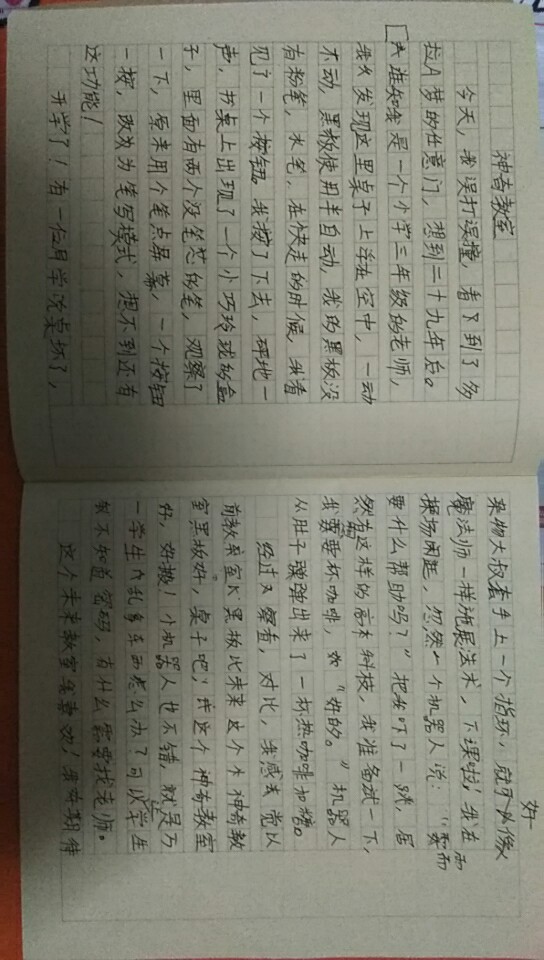 神奇教室
今天，我误打误撞，看到了多
拉A梦的任意门，想到二十九年后。
谁知我是一个小学三年级的老师，
我发现这里桌子上浮在空中，一动
不动，黑板使用半自动，我的黑板没
有粉笔，水笔，在快走的时候，我看
见了一个按钮。我按了下去，砰地一
声，书桌上出现了一个小巧玲珑的盒
子，里面有两个没笔芯的笔，观察了
一下，原来用个笔点屏幕，一个按钮
一按，改为笔写模式，想不到还有
这功能！
开学了！有一位同学说桌坏了，
杂物大叔套手上一个指环，就好像
魔法师一样施展法术，下课啦！我在
操场闲逛，忽然一个机器人说：“需而
要什么帮助吗？”把我吓了一跳，居
然有这样的高术科技，我准备试一下，
我需要杯咖啡，“好的。”机器人
从肚子弹出来了一杯热咖啡加糖。
经过观察看，对比，我感觉以
前教室黑板比未来这个神奇教
室黑板好，桌子吧！这个神奇教室
好，好搬！小机器人也不错，就是万
一学生乱拿东西怎么办？可以学生
不知道密码，有什么需要找老师。
这个未来教室我喜欢！我在期待